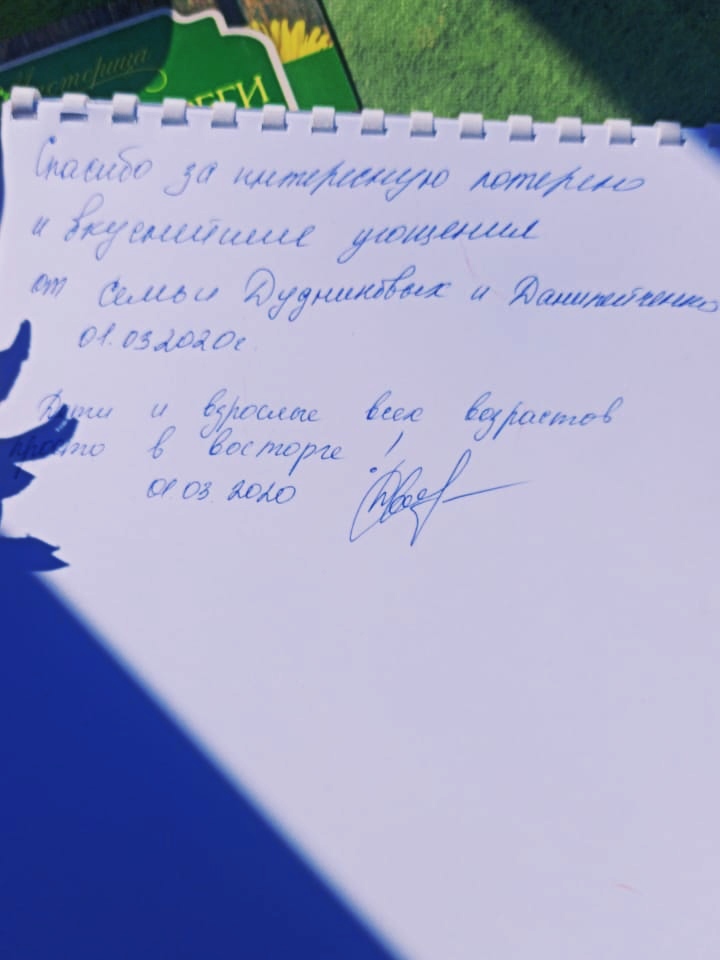 Мастерица
Спасибо за интересную лотерею
и вкуснейшие угощения
от семьи Дудниковых и
01.03.2020г.
Дети и взрослые всех возрастов
просто в восторге!
01.03.2020